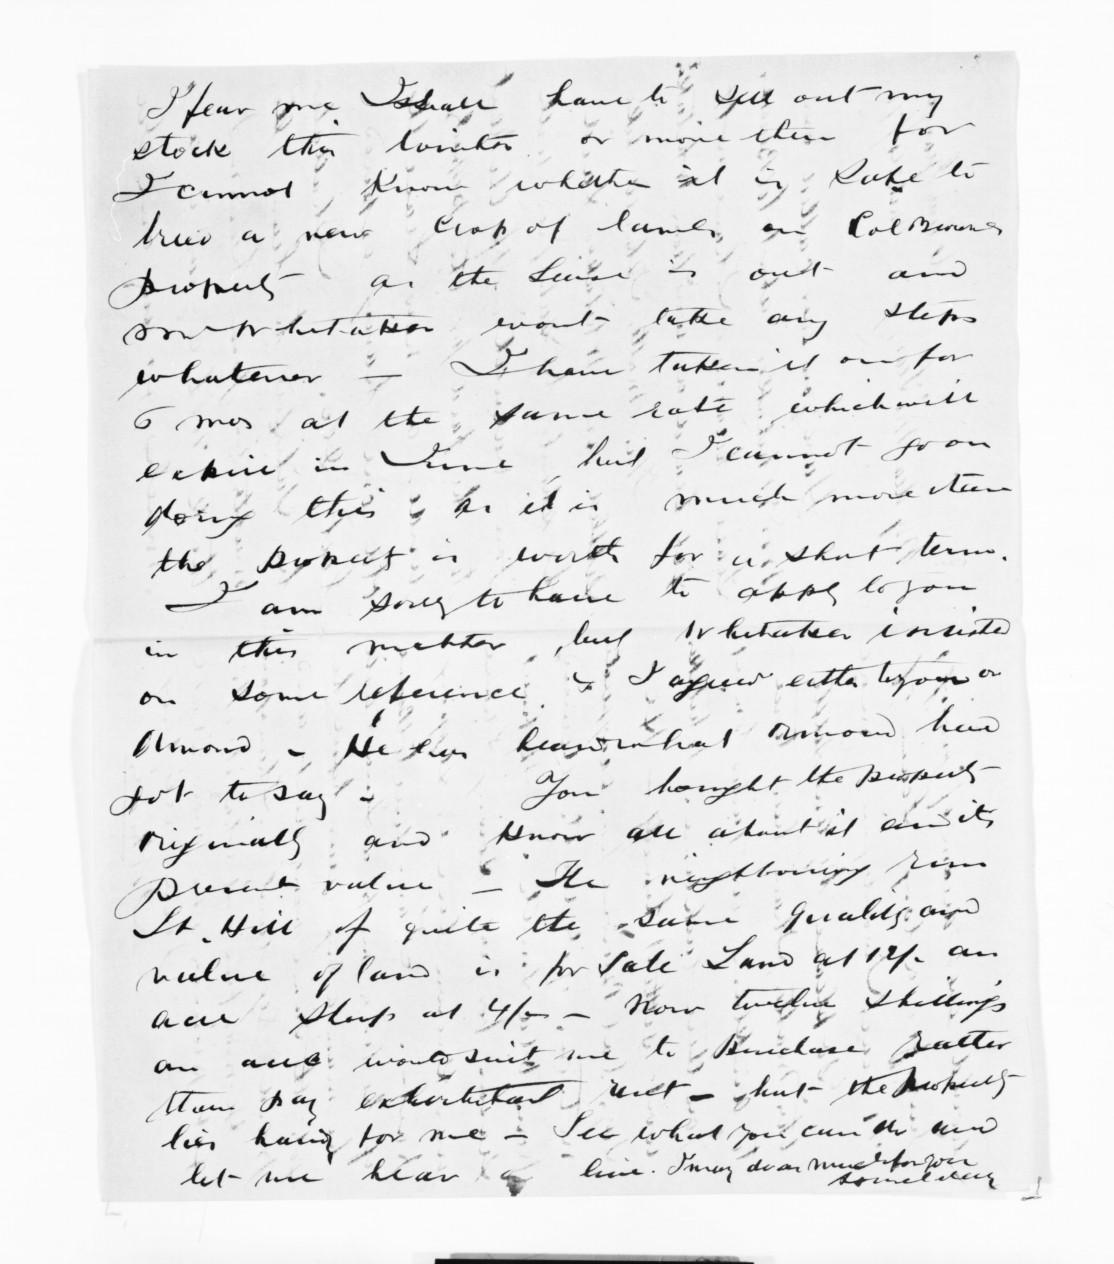 I fear me I shall have to sell out my
stock this winter or more then for
I cannot know whether it is safe to
breed a new crop of lambs on Col Brownes
property as the lease is out and
Mr Whitaker wont take any steps
whatever — I have taken it on for
6 mos at the same rate which will
expire in June but I cannot go on
doing this as it is much more than
the property is worth for a short term.
I am sorry to have to apply to you
in this matter but Whitaker insisted
on some reference & I agreed either to you or
Ormond – He has heard what Ormond had
got to say – You bought the property
originally and know all about it and its
present value – The neighbouring run
St. Hill of quite the same quality and
value of land is for Sale Land at 12/- an
acre Sheep at 4/- – Now twelve shillings
an acre would suit me to purchase rather
than pay exhorbitant rent – but the property
lies handy for me – See what you can do and
let me hear a line. I may do as much for you
some day